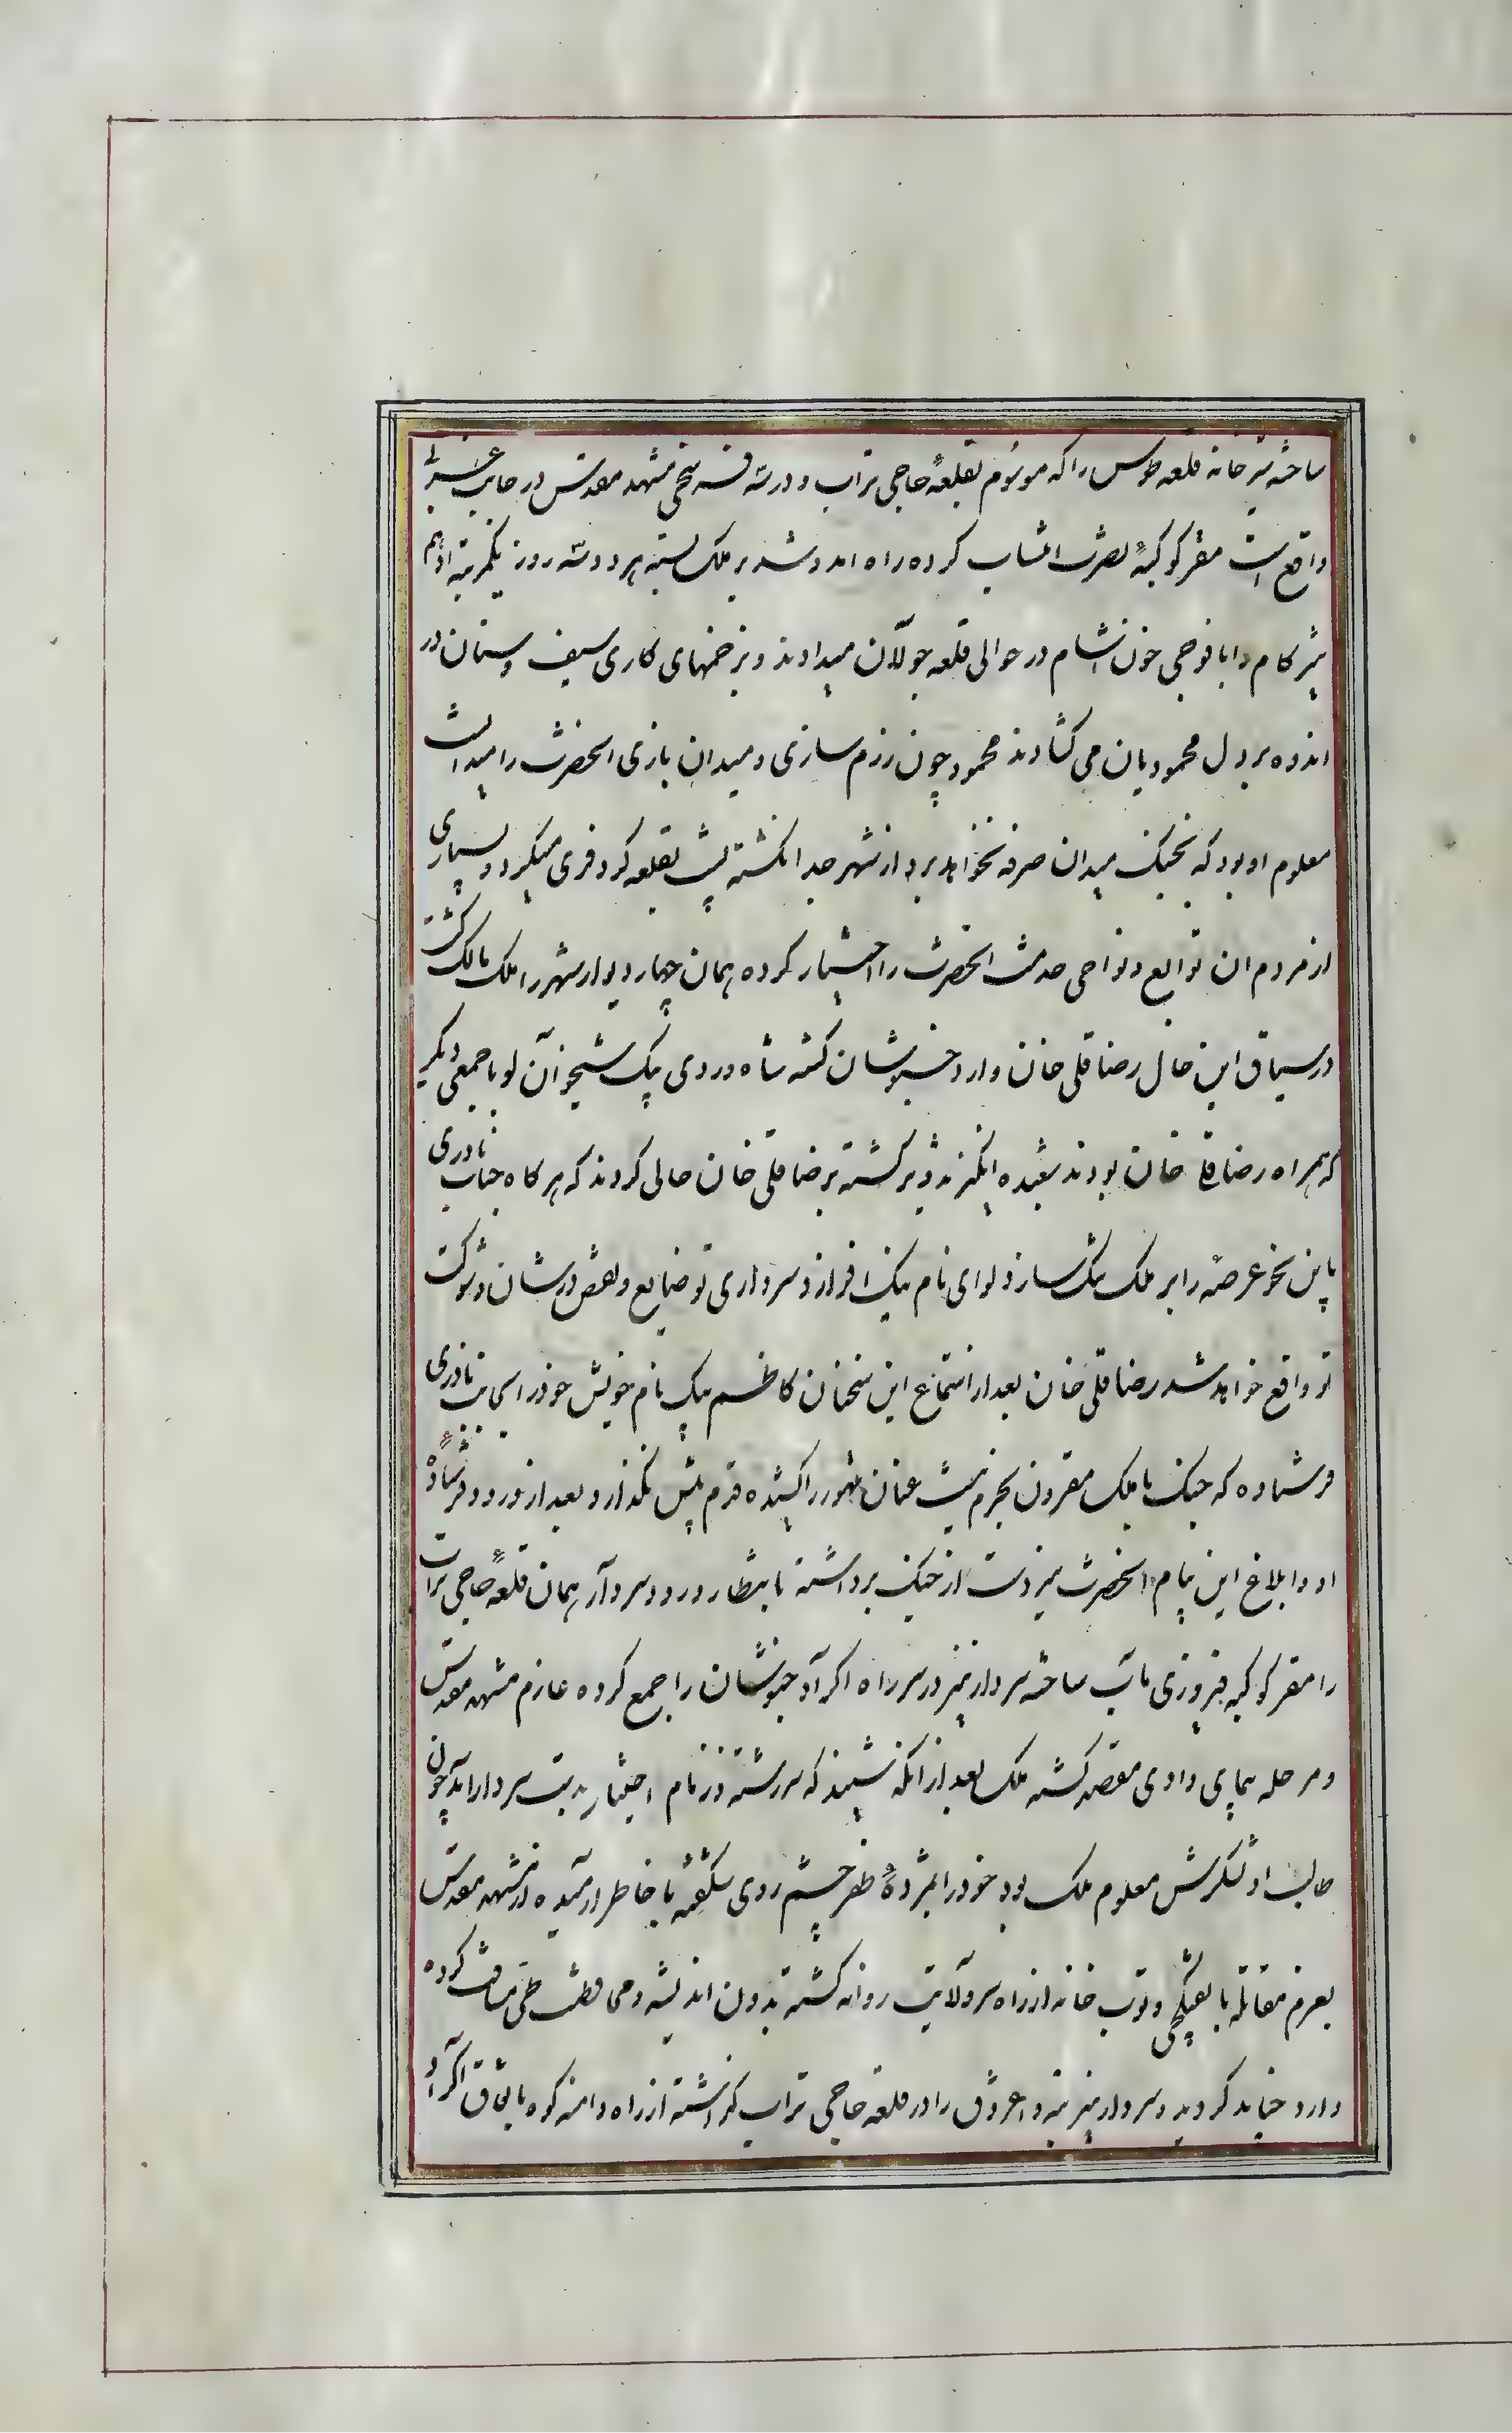 ساخته سرخانه قلعه طوس را که موسوم بقلعهٔ حاجی تراب و در سه فرسخی مشهد مقدس در جانب غربی
واقع است مقر کوکبهٔ نصرت انتساب کرده راه آمد و شد بر ملک بسته هر دو سه روز یکمرتبه ادهم
تیز کام را با فوجی خون آشام در حوالی قلعه جولان میدادند و بزخمهای کاری سیف و سنان در
اندوه بر دل محمودیان می کشادند محمود چون رزم سازی و میدان بازی آنحضرت را میدانست
معلوم او بود که بجنک میدان صرفه نخواهد برد از شهر جدا نکشته پشت بقلعه کر و فری میکرد و بسیاری
از مردم ان توابع و نواحی خدمت آنحضرت را اختیار کرده همان چهار دیوار شهر را ملک مالک کشت
در سیاق این حال رضا قلی خان وارد خبوشان کشته شاه وردی بیک شیخوانلو با جمعی دیکر
که همراه رضا قلی خان بودند شعبده انکیز شده بر کشته برضا قلی خان حالی کردند که هر کاه جناب نادری
باین نحو عرصه را بر ملک تنک سازد لوای نام نیک افرازد سرداری تو ضایع و نقص در شان و شوکت
تو واقع خواهد شد رضا قلی خان بعد از استماع این سخنان کاظم بیک نام خویش خود را بجانب نادری
فرستاده که جنک با ملک مقرون بحزم نیست عنان تهور را کشیده قدم پیش نکذارد بعد از ورود فرستادهٔ
او و ابلاغ این پیام آنحضرت نیز دست از جنک برداشته بانتظار ورود سردار همان قلعهٔ حاجی تراب
را مقر کوکبه فیروزی مآب ساخته سردار نیز در سر راه اکراد خبوشان را جمع کرده عازم مشهد مقدس
و مرحله پیمای وادی مقصد کشته ملک بعد از آنکه شنید که سر رشته زمام اختیار بدست سردار آمد چون
حالت او و لشکرش معلوم ملک بود خود را بمژدهٔ ظفر چشم روی شکفته با خاطر آرمیده از مشهد مقدس
بعزم مقاتله با تفنکچی و توپ خانه از راه سر ولایت روانه کشته بدون اندیشه و محافظت طی مسافت کرده
وارد جناید کردید و سردار نیز بنه و اغروق را در قلعه حاجی تراب کذاشته از راه دامنه کوه باتفاق اکراد